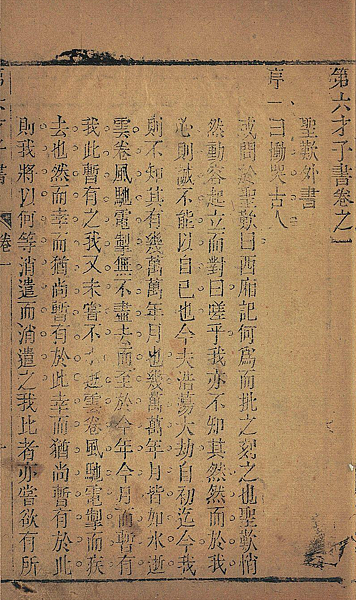 第六才子書卷之一
聖歎外書
序一曰慟哭古人
或問於聖歎曰西廂記何爲而批之刻之也聖歎悄
然動容起立而對曰嗟乎我亦不知其然然而於我
心則誠不能以自已也今夫浩蕩大劫自初迄今我
則不知其有幾萬萬年月也幾萬萬年月皆如水逝
雲卷風馳電掣無不盡去而至於今年今月而暫有
我此暫有之我又未嘗不水逝雲卷風馳電掣而疾
去也然而幸而猶尚暫有於此幸而猶尚暫有於此
則我將以何等消遣而消遣之我比者亦嘗欲有所
第六才子書
卷一